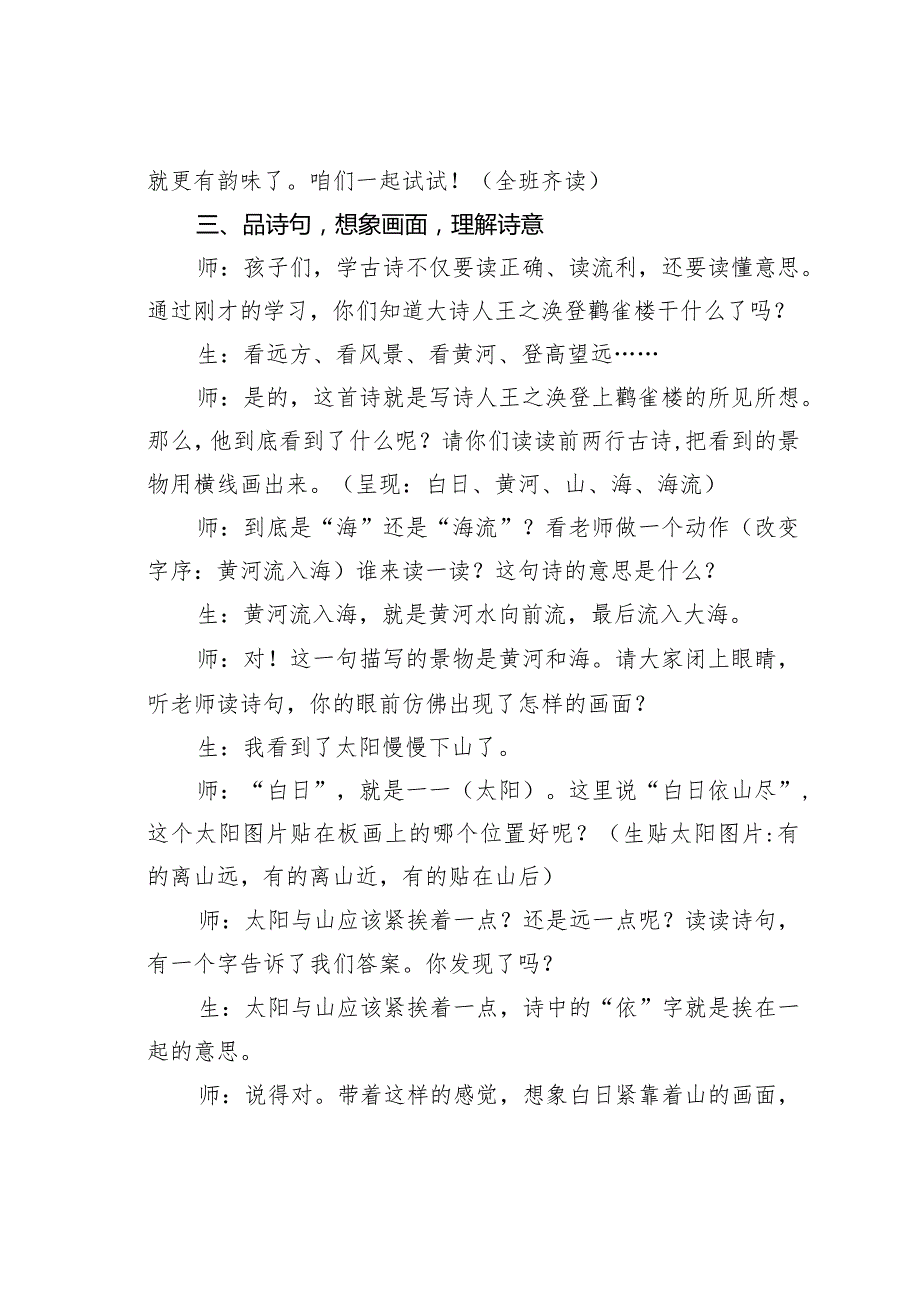 就更有韵味了。咱们一起试试！（全班齐读）
三、品诗句，想象画面，理解诗意
师：孩子们，学古诗不仅要读正确、读流利，还要读懂意思。
通过刚才的学习，你们知道大诗人王之涣登鹳雀楼干什么了吗？
生：看远方、看风景、看黄河、登高望远……
师：是的，这首诗就是写诗人王之涣登上鹳雀楼的所见所想。
那么,他到底看到了什么呢？请你们读读前两行古诗,把看到的景
物用横线画出来。（呈现：白日、黄河、山、海、海流）
师：到底是“海”还是“海流”？看老师做一个动作（改变
字序：黄河流入海）谁来读一读？这句诗的意思是什么？
生：黄河流入海，就是黄河水向前流，最后流入大海。
师：对！这一句描写的景物是黄河和海。请大家闭上眼睛，
听老师读诗句，你的眼前仿佛出现了怎样的画面？
生：我看到了太阳慢慢下山了。
师：“白日”，就是一一（太阳）。这里说“白日依山尽”，
这个太阳图片贴在板画上的哪个位置好呢？（生贴太阳图片:有
的离山远，有的离山近，有的贴在山后）
师：太阳与山应该紧挨着一点？还是远一点呢？读读诗句，
有一个字告诉了我们答案。你发现了吗？
生：太阳与山应该紧挨着一点，诗中的“依”字就是挨在一
起的意思。
师：说得对。带着这样的感觉，想象白日紧靠着山的画面，